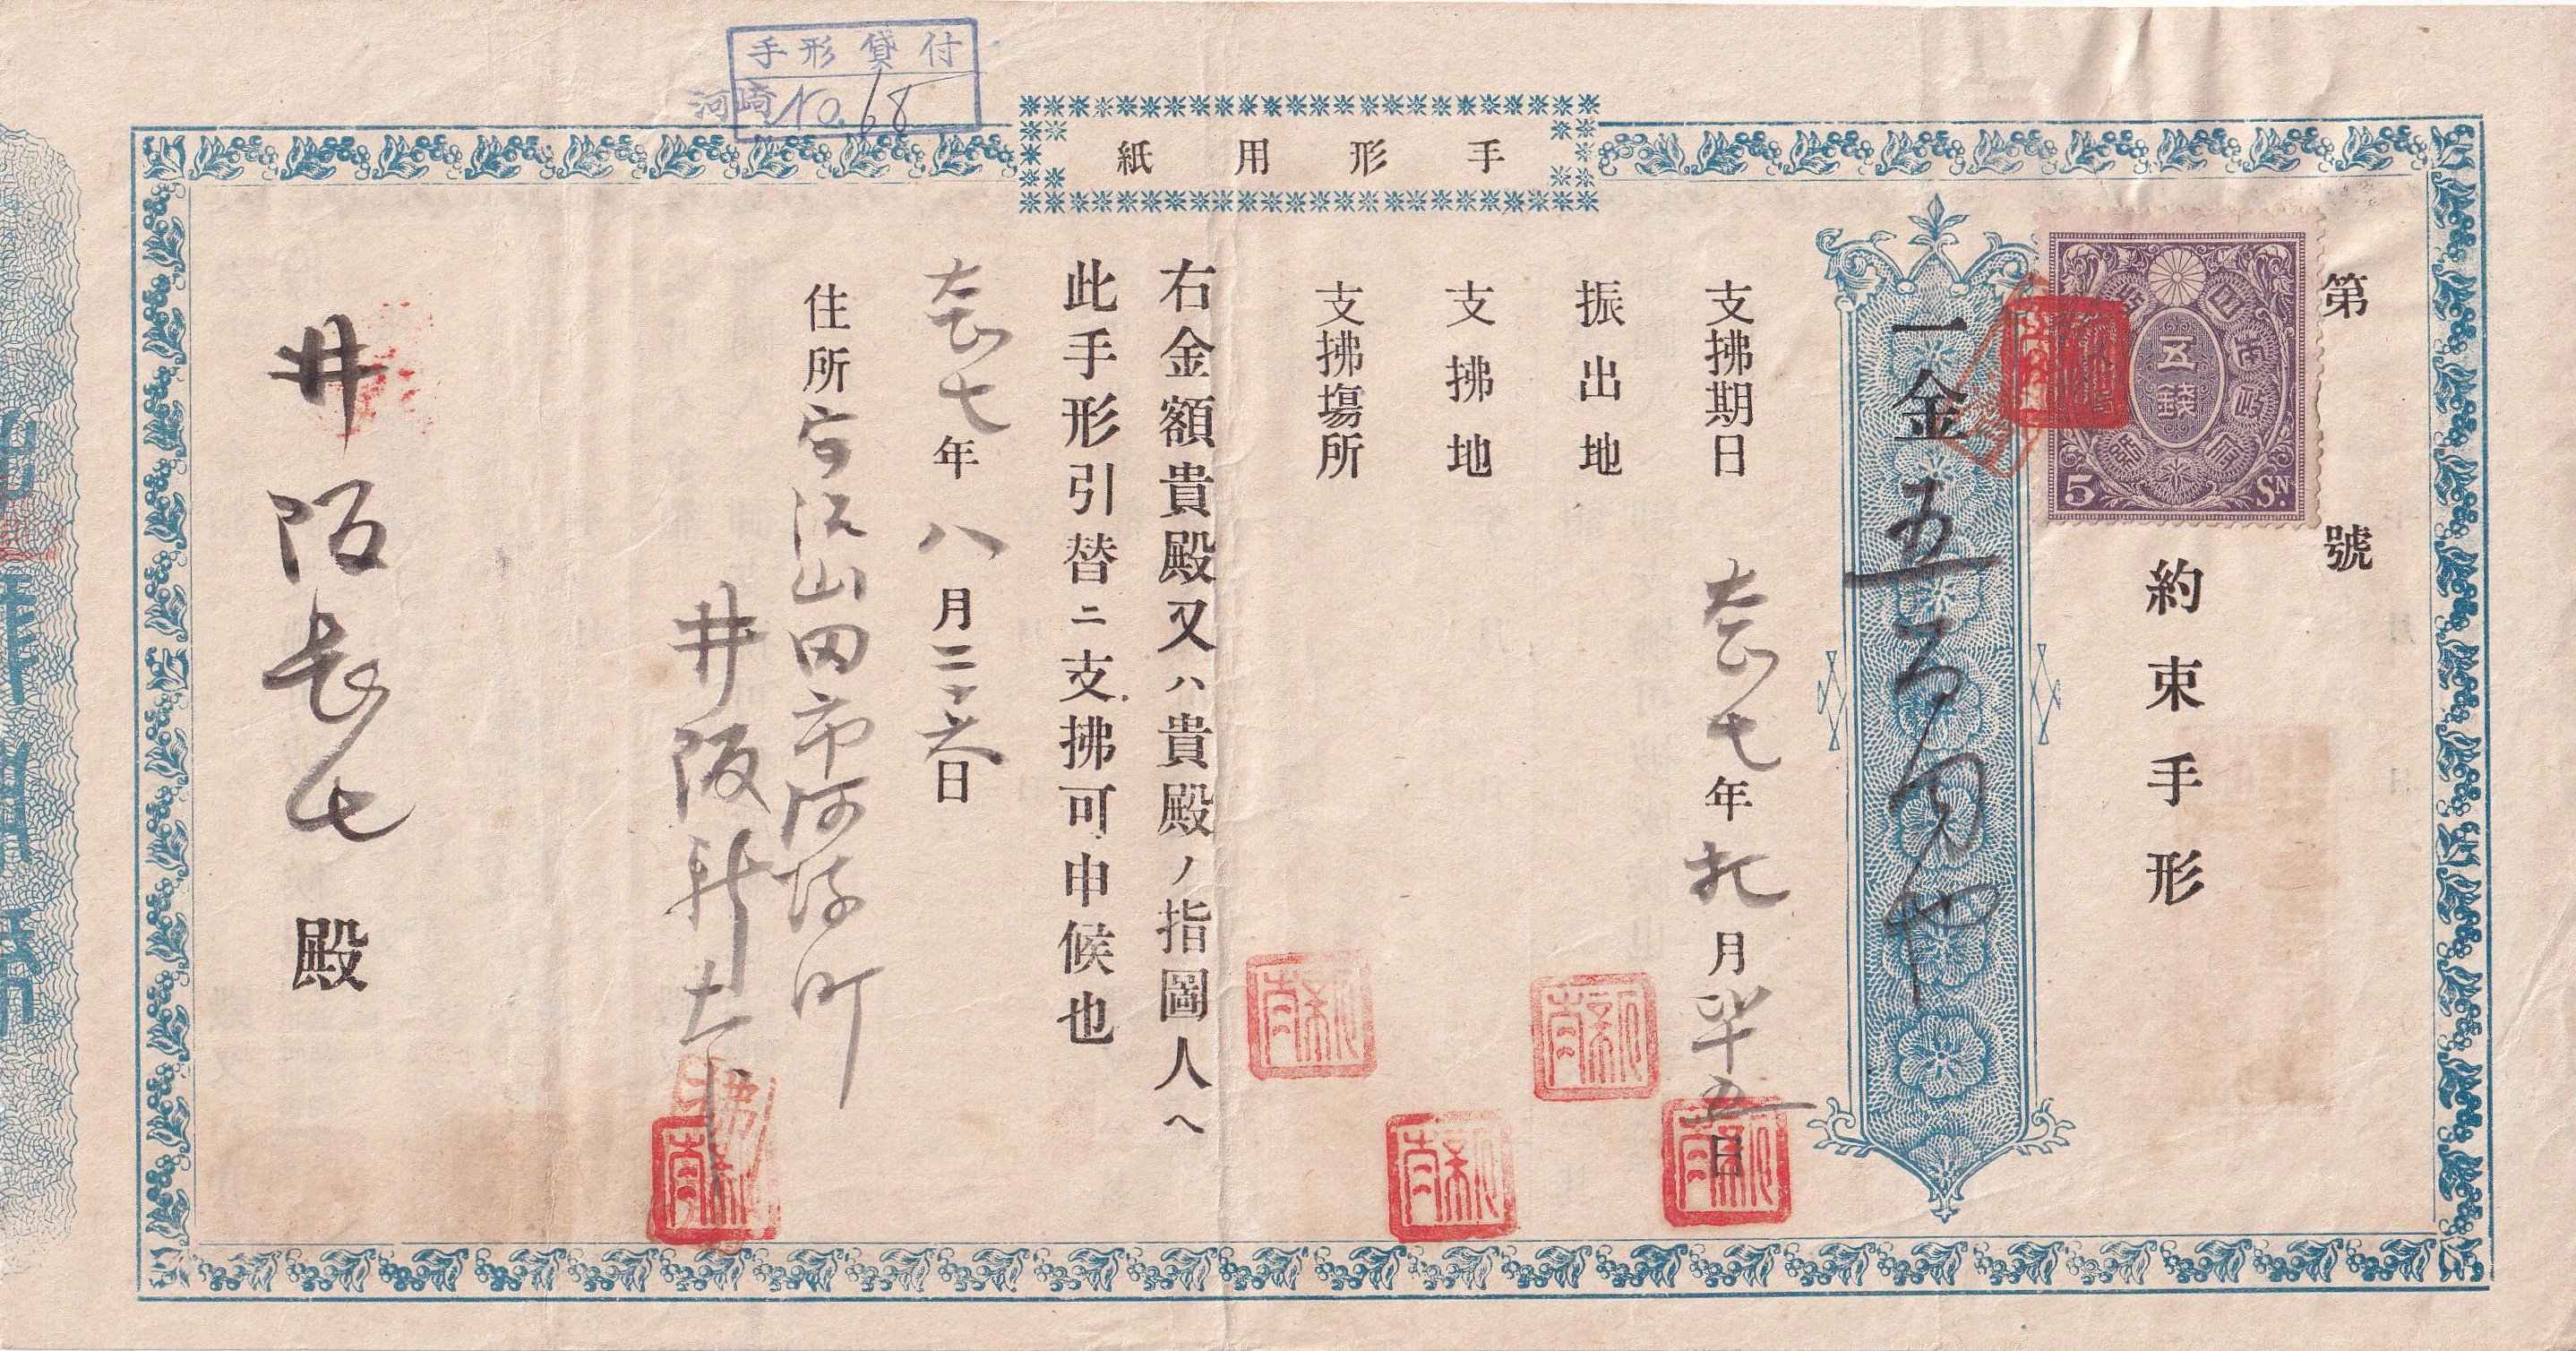 手形貸付
河崎 No.68
手形用紙
第 號
約束手形
五錢
5 SN.
一金五百円也
支拂期日 大正七年九月廿五日
振出地
支拂地
支拂塲所
右金額貴殿又ハ貴殿ノ指圖人ヘ
此手形引替ニ支拂可申候也
大正七年八月二十六日
住所 宇治山田市河崎町
井阪新太
井阪長七殿